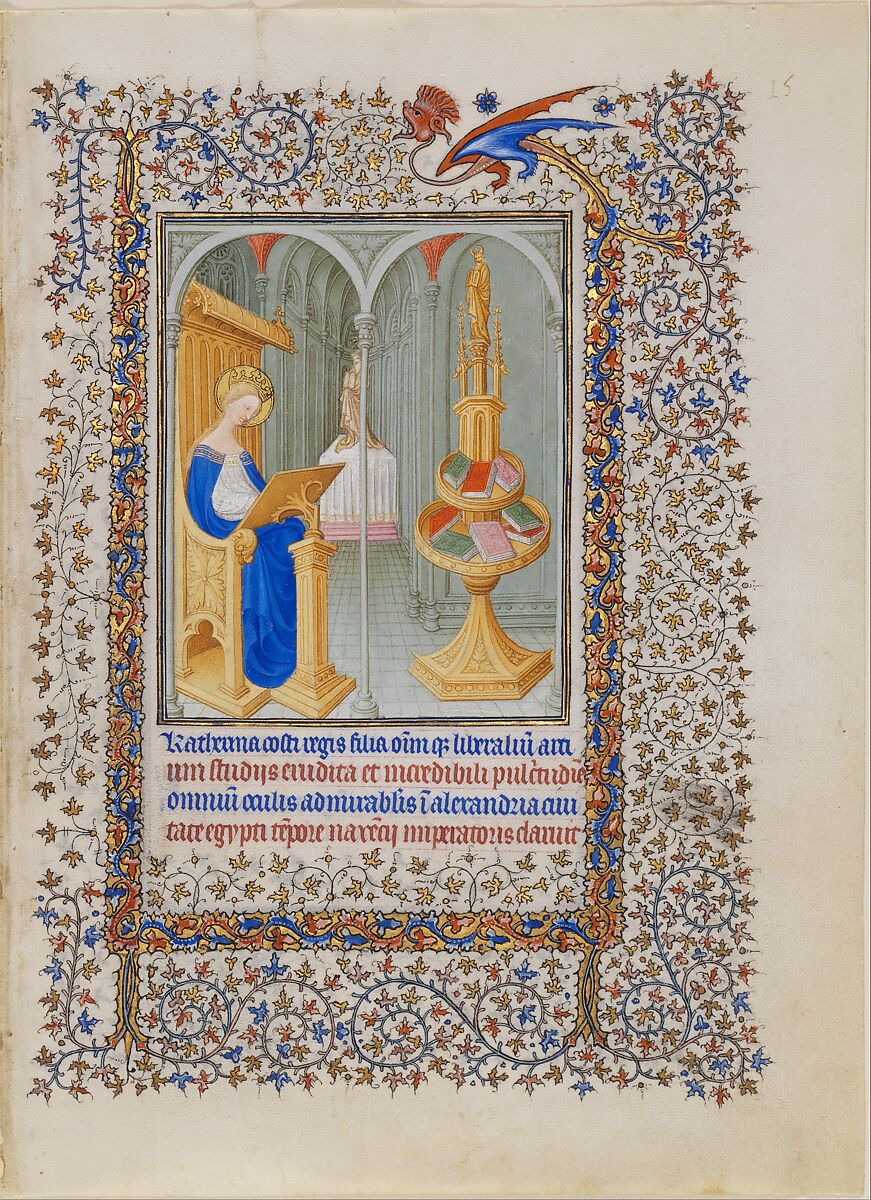 15
Katherina costi regis filia oīm qȝ liberaliū arti
um studijs erudita et incredibili pulc̄tudīe
omniū oculis admirabl̓is ī alexandria ciui
tate egypti tēpore naxēcij imperatoris claruit